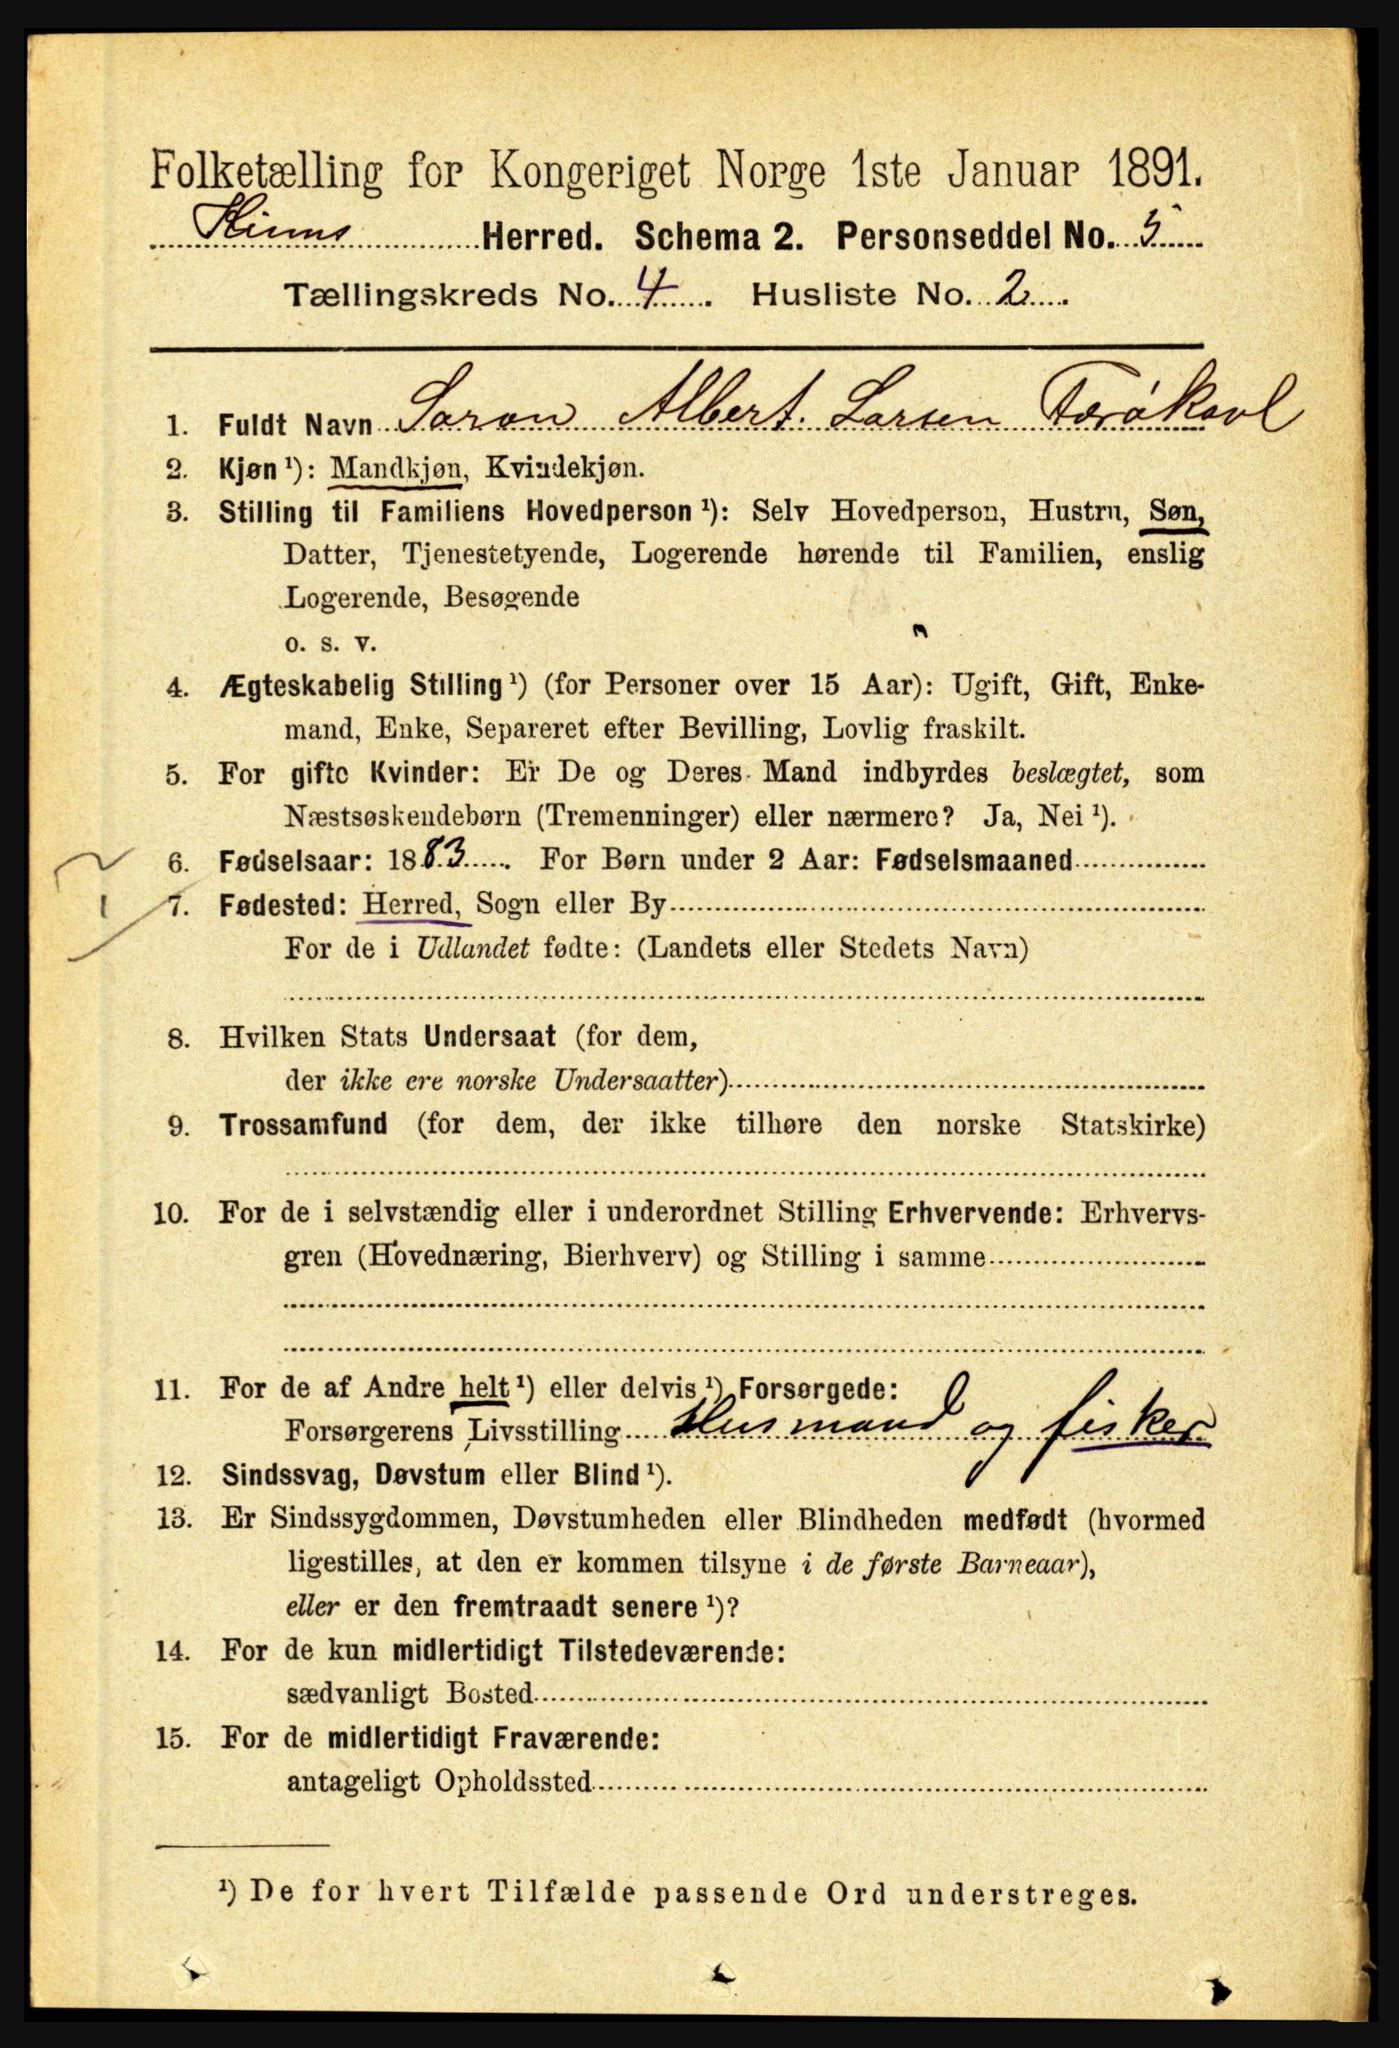 Folketælling for Kongeriget Norge 1ste Januar 1891.
Kinns Herred. Schema 2. Personseddel No. 5
Tællingskreds No. 4. Husliste No. 2.
1. Fuldt Navn Saron Albert. Larsen Færøkavl
2. Kjøn ¹): Mandkjøn, Kvindekjøn.
3. Stilling til Familiens Hovedperson ¹): Selv Hovedperson, Hustru, Søn,
Datter, Tjenestetyende, Logerende hørende til Familien, enslig
Logerende, Besøgende
o. s. v.
4. Ægteskabelig Stilling ¹) (for Personer over 15 Aar): Ugift, Gift, Enke-
mand, Enke, Separeret efter Bevilling, Lovlig fraskilt.
5. For gifte Kvinder: Er De og Deres Mand indbyrdes beslægtet, som
Næstsøskendebørn (Tremenninger) eller nærmere? Ja, Nei ¹).
6. Fødselsaar: 1883. For Børn under 2 Aar: Fødselsmaaned
7. Fødested: Herred, Sogn eller By
For de i Udlandet fødte: (Landets eller Stedets Navn)
8. Hvilken Stats Undersaat (for dem,
der ikke ere norske Undersaatter)
9. Trossamfund (for dem, der ikke tilhøre den norske Statskirke)
10. For de i selvstændig eller i underordnet Stilling Erhvervende: Erhvervs-
gren (Hovednæring, Bierhverv) og Stilling i samme
11. For de af Andre helt ¹) eller delvis ¹) Forsørgede:
Forsørgerens Livsstilling Husmand og fisker
12. Sindssvag, Døvstum eller Blind ¹).
13. Er Sindssygdommen, Døvstumheden eller Blindheden medfødt (hvormed
ligestilles, at den er kommen tilsyne i de første Barneaar),
eller er den fremtraadt senere ¹)?
14. For de kun midlertidigt Tilstedeværende:
sædvanligt Bosted
15. For de midlertidigt Fraværende:
antageligt Opholdssted
¹) De for hvert Tilfælde passende Ord understreges.